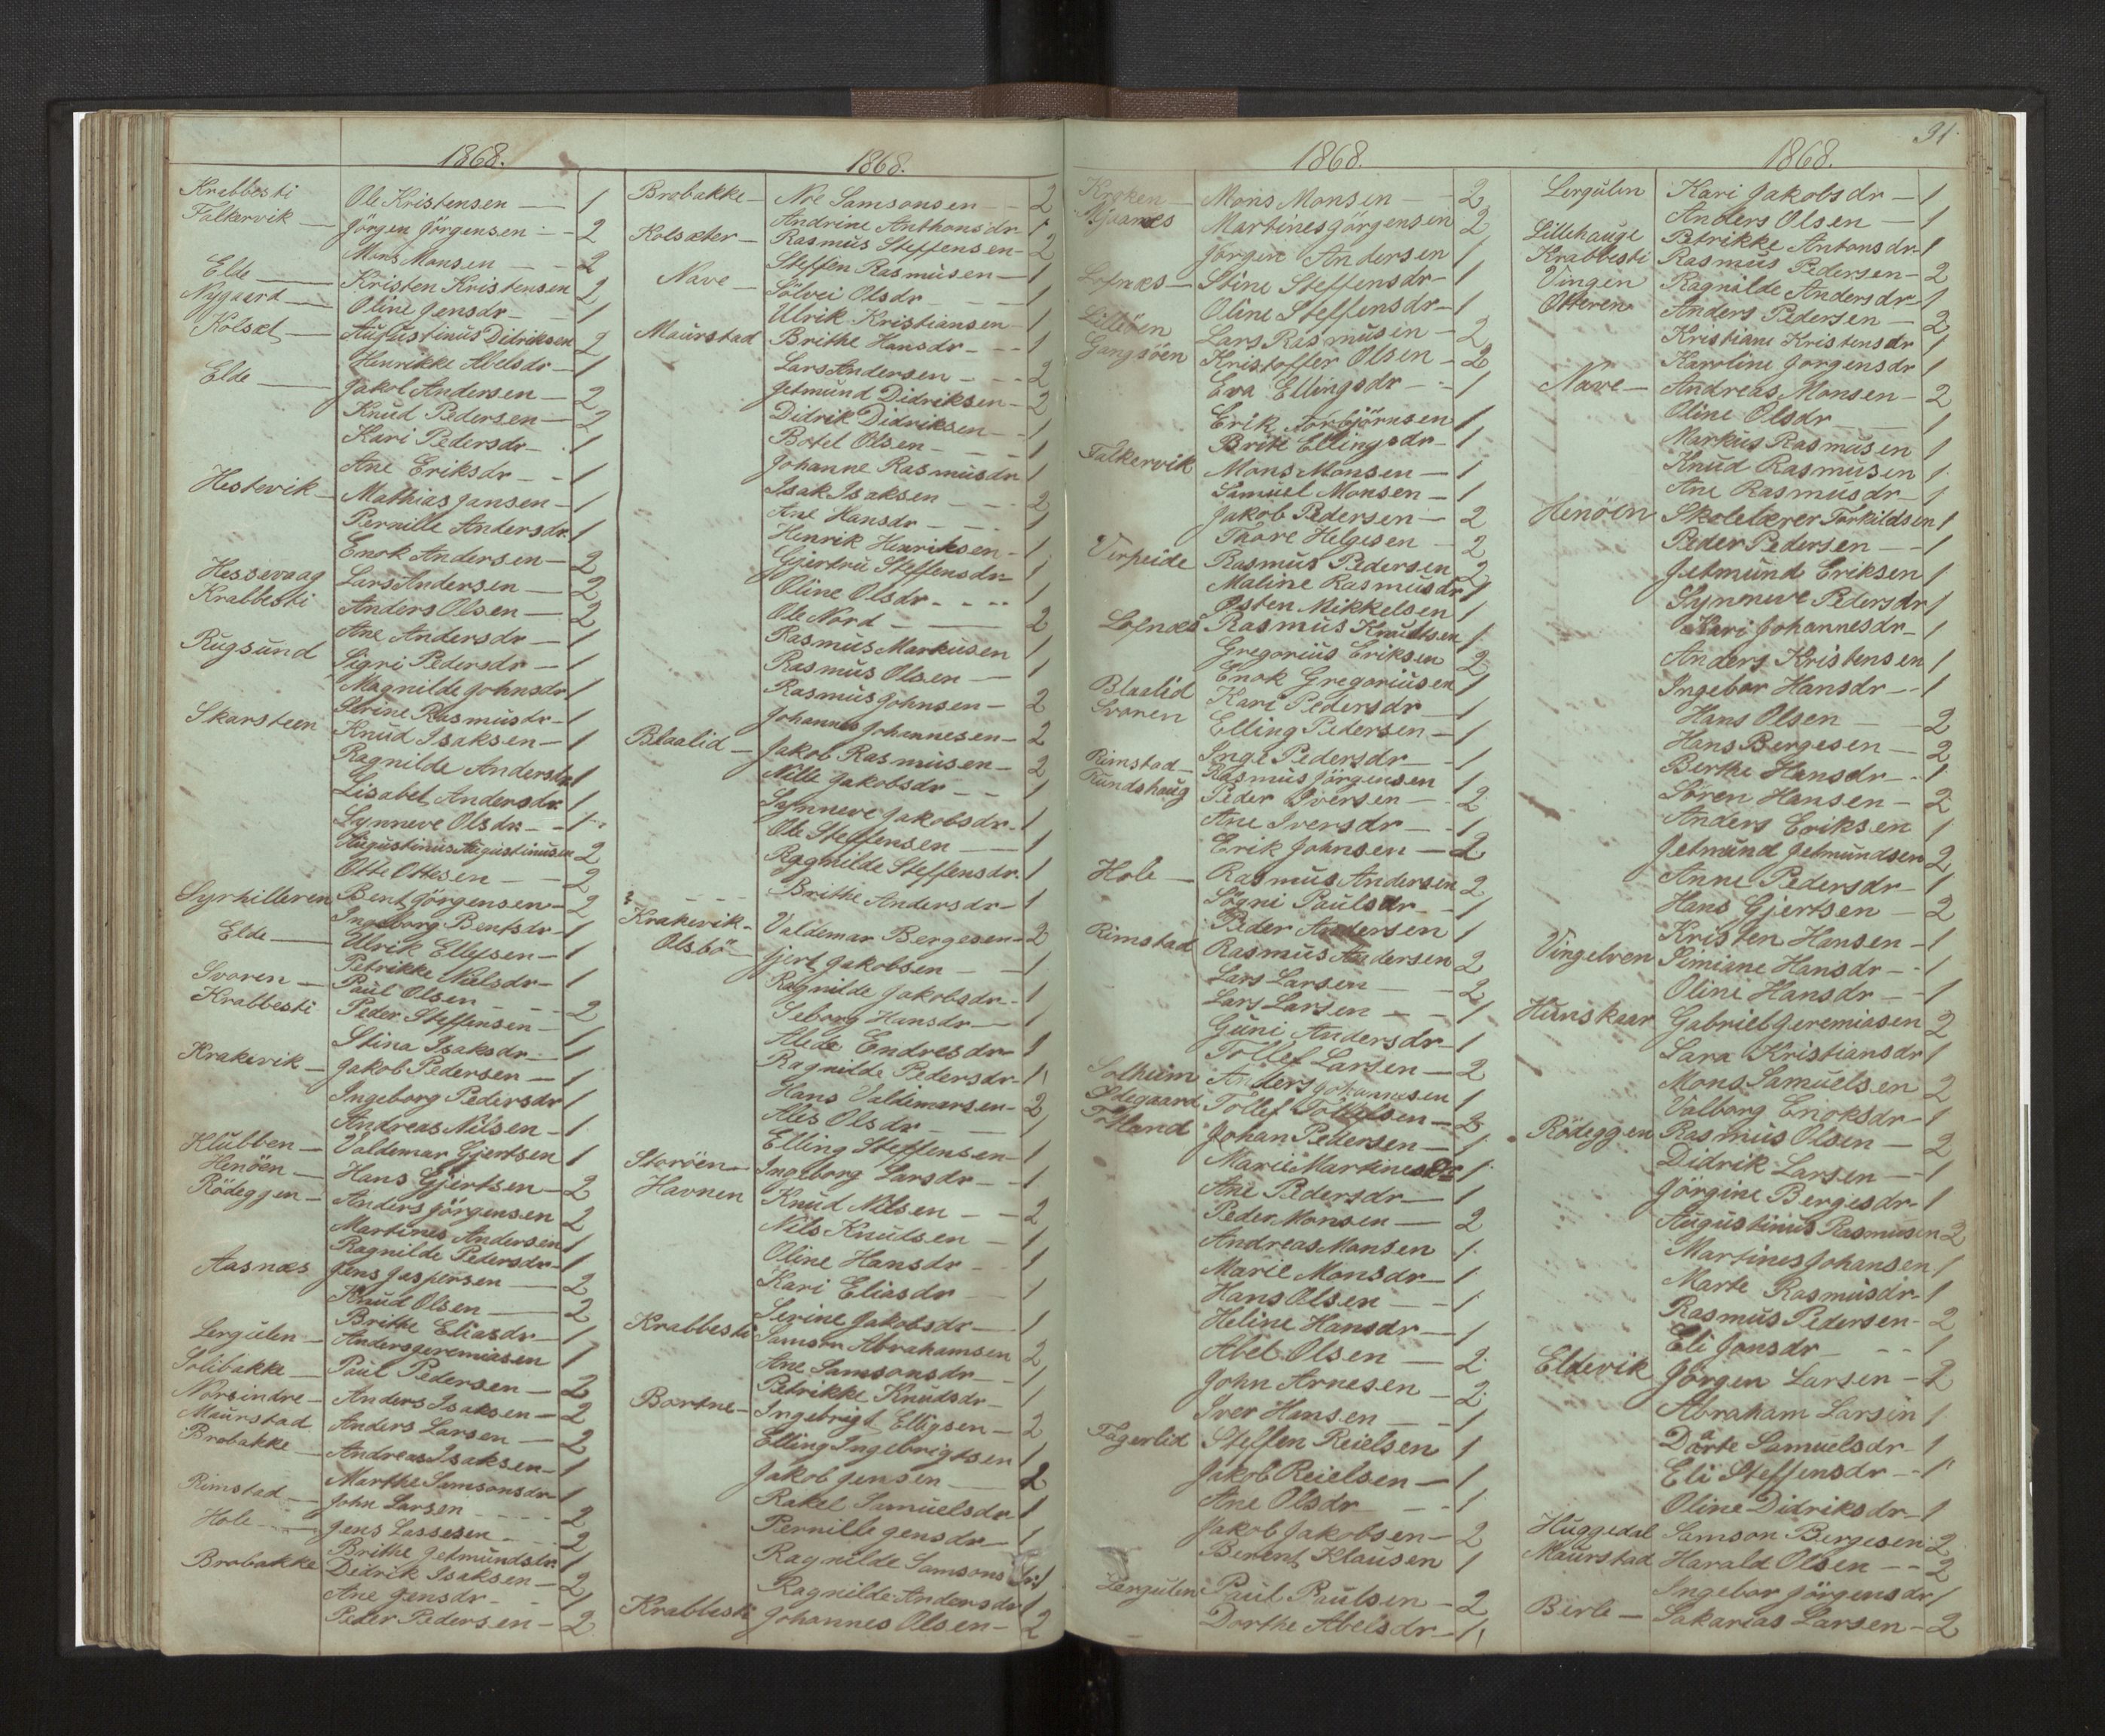 1868.
Krabbesti Ole Kristensen — 1
Falkervik — Jörgen Jörgensen — 2
Mons Monsen — 2
Elde — Kristen Kristensen 2
Nygaard — Oline Jensdr — 1
Kolset — Augustinus Didriksen 2
Henrikke Abelsdr — 1
Elde — Jakob Andersen — 2
Knud Pedersen — 2
Kari Pedersdr — 1
Ane Eriksdr — 1
Hestevik — Mathias Jansen — 1
Pernille Andersdr. 1
Enok Andersen — 2
Hessevaag Lars Andersen — 2
Krabbesti Anders Olsen — 2
Ane Andersdr — 1
Rugsund Sigri Pedersdr — 1
Magnilde Johnsdr 1
Serine Rasmusdr — 1
Skarsteen Knud Isaksen — 1
Ragnilde Andersdr 1
Lisabet Andersdr 1
Synneve Olsdr — 1
Augustinus Augustinusen 2
Otte Ottesen — 2
Syrhilleren Bent Jörgensen — 2
Ingeborg Bentsdr — 1
Elde — Ulrik Ellefsen — 1
Petrikke Nielsdr — 1
Svoren — Paul Olsen — 2
Krabbesti Peder Steffensen — 1
Stina Isaksdr — 1
Krakevik — Jakob Pedersen — 1
Ingeborg Pedersdr 1
Andreas Nilsen — 1
Klubben — Valdemar Gjertsen 1
Henöen — Hans Gjertsen — 2
Rödeggen — Anders Jörgensen 2
Martines Andersen 1
Ragnilde Petersdr — 1
Aasnæs Jens Jaspersen — 2
Knud Olsen — 2
Brithe Eliasdr — 1
Lergulen — Anders Jeremiasen 1
Solibakke — Paul Pedersen — 2
Norsindre — Anders Isaksen — 2
Maurstad Anders Larsen — 2
Brobakke — Andreas Isaksen — 1
Marthe Samsonsdr 1
Rimstad — John Larsen — 2
Hole — Jens Lassesen — 2
Brithe Getmundsdr. 1
Brobakke Didrik Isaksen — 2
Ane Jensdr — 1
Peder Pedersen — 2
1868.
Brobakke — Noe Samsonsen — 2
Andrine Anthonsdr 1
Kolsæter — Rasmus Steffensen — 2
Steffen Rasmusen — 1
Nave — Sölvei Olsdr — 1
Ulrik Kristiansen — 1
Maurstad Brithe Hansdr — 1
Lars Andersen — 2
Getmund Didriksen — 2
Didrik Didriksen — 1
Botel Olsen — 1
Johanne Rasmusdr 1
Isak Isaksen — 2
Ane Hansdr — 1
Henrik Henriksen — 1
Gjertrü Steffensdr 1
Oline Olsdr — 1
Ole Nord — 2
Rasmus Markusen 1
Rasmus Olsen — 1
Rasmus Johnsen — 2
Johannes Johannesen — 2
Blaalid — Jakob Rasmusen — 2
Nille Jakobsdr — 1
Synneve Jakobsdr — 1
Ole Steffensen — 1
Ragnilde Steffensdr. 1
Brithe Andersdr — 1
Krakevik — Valdemar Bergesen — 2
Olsbö — Gjert Jakobsen — 1
Ragnilde Jakobsdr — 1
Seborg Hansdr — 1
Alede Endresdr 1
Ragnilde Pedersdr — 1
Hans Valdemarsen — 2
Alis Olsdr — 1
Elling Steffensen — 1
Storöen — Ingeborg Larsdr — 1
Havnen Knud Nilsen — 2
Nils Knutsen — 1
Oline Hansdr — 1
Kari Eliasdr — 1
Serine Jakobsdr — 1
Krabbesti Samson Abrahamsen 2
Ane Samsonsdr — 1
Petrikke Knudsdr — 1
Bortne — Ingebrigt Elligsen — 2
Elling Ingebrigtsen 1
Jakob Jensen — 2
Rakel Samuelsdr 1
Pernille Jensdr — 1
Ragnilde Samsonsdr. 1
Ragnilde Andersdr 1
Krabbesti Johannes Olsen — 2
1868.
Kroken — Mons Monsen — 2
Martines Jörgensen 2
Jörgen Andersen 1
Lofnæs — Stine Steffensdr — 1
Oline Steffensdr — 1
Lillöen Lars Rasmusen — 2
Gangsöen Kristoffer Olsen — 2
Eva Ellingsdr — 1
Erik Torbjörnsen 1
Brite Ellingsdr — 1
Falkervik Mons Monsen — 1
Samuel Monsen — 1
Jakob Pedersen — 2
Thore Helgesen — 2
Verpeide Rasmus Pedersen 2
Maline Rasmusdr 1
Östen Mikkelsen 1
Lofnæs Rasmus Knudtsen 1
Gregorius Eriksen 2
Enok Gregoriusen 1
Blaalid Kari Pedersdr — 1
Svoren Elling Pedersen — 1
Rimstad — Inge Pedersdr — 1
Rundshaug Rasmus Jörgensen 1
Peder Iversen — 2
Ane Iversdr — 1
Erik Johnsen — 2
Hole — Rasmus Andersen 2
Sögni Paulsdr — 1
Peder Andersen 1
Rimstad Rasmus Andersen 2
Lars Larsen — 2
Lars Larsen — 1
Guni Andersdr — 1
Tollef Larsen — 2
Solheim Anders Johannesen 1
Ödegaard Tollef Tollefsen — 2
Totland Johan Pedersen — 1
Marie Martinesdr 1
Ane Pedersdr — 1
Peder Monsen — 2
Andreas Monsen 1
Marie Monsdr — 1
Hans Olsen — 1
Heline Hansdr — 1
Abel Olsen — 2
John Arnesen — 2
Iver Hansen — 1
Fagerlid Steffen Reielsen 1
Jakob Reielsen — 1
Ane Olsdr — 1
Jakob Jakobsen — 2
Berent Klausen 1
Lergulen Paul Paulsen — 2
Dorthe Abelsdr — 1
91
1868.
Lergulen Kari Jakobsdr — 1
Anders Olsen — 1
Lillehauge Petrikke Antonsdr. 1
Krabbesti Rasmus Pedersen — 2
Vingen Ragnilde Andersdr — 1
Otteren Anders Pedersen — 2
Kristiane Kristensdr 1
Karoline Jörgensdr 1
Nave — Andreas Monsen — 2
Oline Olsdr 1
Markus Rasmusen 1
Knud Rasmusen 1
Ane Rasmusdr — 1
Henöen Skolelærer Torkildsen 1
Peder Pedersen — 1
Getmund Eriksen 1
Synneve Pedersdr 1
Kari Johannesdr — 1
Anders Kristensen 1
Ingebor Hansdr — 1
Hans Olsen — 2
Hans Bergesen — 2
Berthe Hansdr — 1
Sören Hansen — 2
Anders Eriksen 1
Getmund Getmundsen 2
Anne Pedersdr — 1
Hans Gjertsen — 2
Kristen Hansen — 1
Vingelven Simiane Hansdr — 1
Oline Hansdr — 1
Hunskaar Gabriel Jeremiasen 2
Sara Kristiansdr 1
Mons Samuelsen 2
Valborg Enoksdr — 1
Rödeggen Rasmus Olsen — 2
Didrik Larsen — 1
Jörgine Bergesdr — 1
Augustinus Rasmusen 2
Martines Johansen 1
Marte Rasmusdr — 1
Rasmus Pedersen — 2
Eli Jonsdr — 1
Eldevik Jörgen Larsen — 2
Abraham Larsen 1
Dorte Samuelsdr — 1
Eli Steffensdr — 1
Oline Didriksdr — 1
Huggedal Samson Bergesen 2
Maurstad Harald Olsen — 2
Ingebor Jörgensdr 1
Berle — Sakarias Larsen — 2